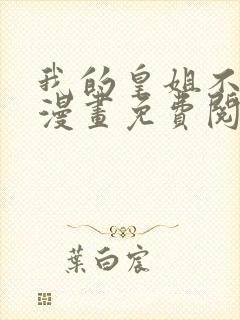 我的皇姐不
漫畫免費閱
葉白宸